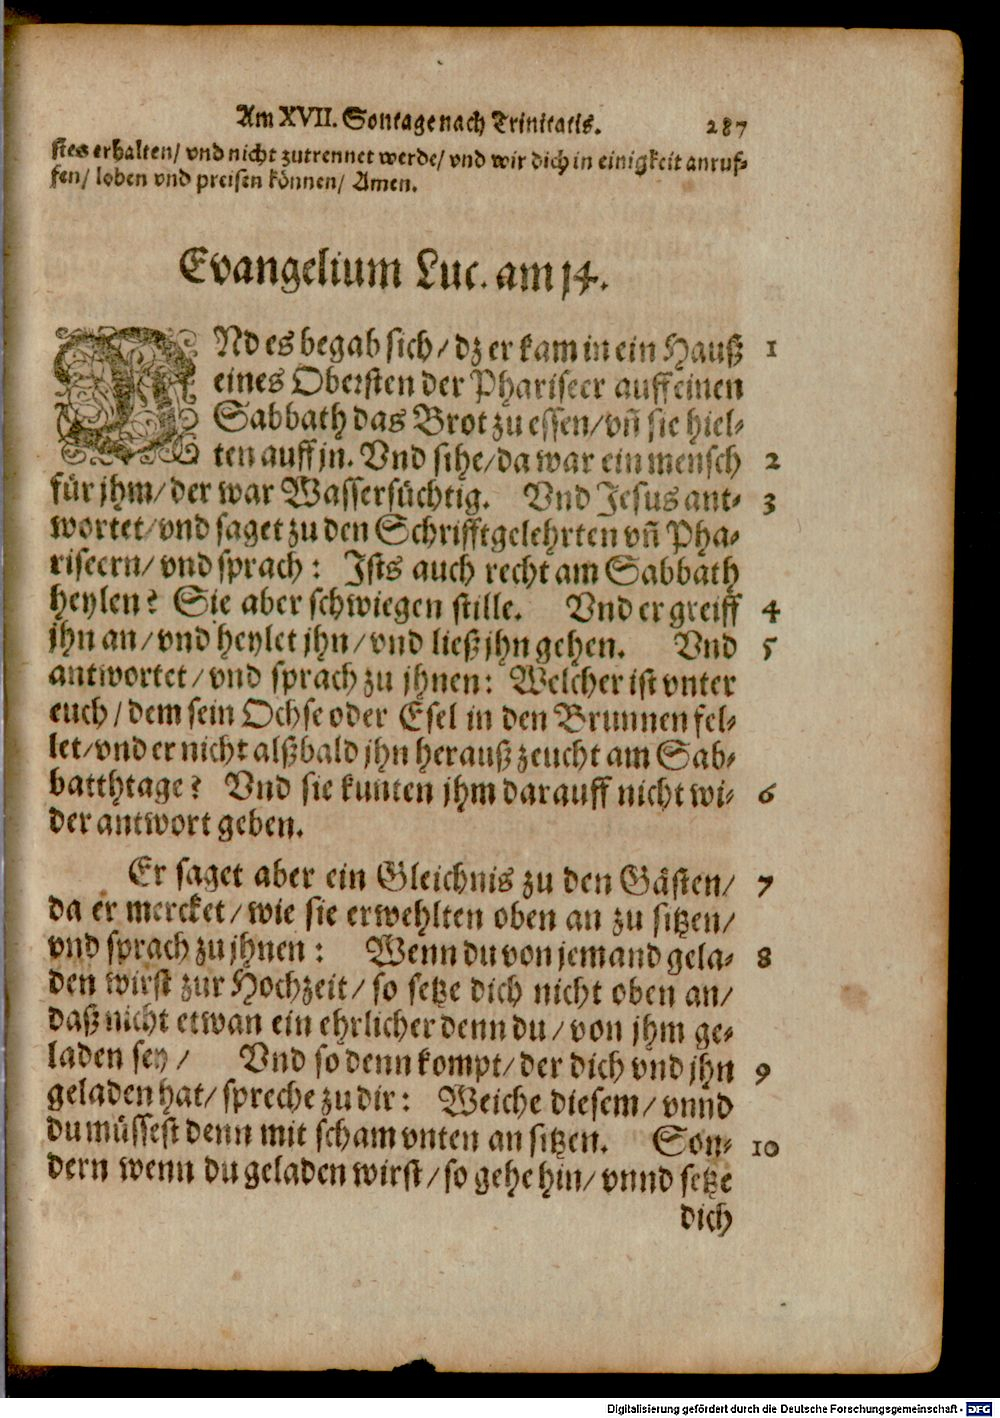 Am XVII. Sontage nach Trinitatis. 287
stes erhalten/ vnd nicht zutrennet werde/ vnd wir dich in einigkeit anruf-
fen/ loben vnd preisen können/ Amen.
Evangelium Luc. am 14.
VNd es begab sich/ dz er kam in ein Hauß 1
eines Obersten der Phariseer auff einen
Sabbath das Brot zu essen/ vñ sie hiel-
ten auff jn. Vnd sihe/ da war ein mensch 2
für jhm/ der war Wassersüchtig. Vnd Jesus ant- 3
wortet/ vnd saget zu den Schrifftgelehrten vñ Pha-
riseern/ vnd sprach: Jsts auch recht am Sabbath
heylen? Sie aber schwiegen stille. Vnd er greiff 4
jhn an/ vnd heylet jhn/ vnd ließ jhn gehen. Vnd 5
antwortet/ vnd sprach zu jhnen: Welcher ist vnter
euch/ dem sein Ochse oder Esel in den Brunnen fel-
let/ vnd er nicht alßbald jhn herauß zeucht am Sab-
batthtage? Vnd sie kunten jhm darauff nicht wi- 6
der antwort geben.
Er saget aber ein Gleichnis zu den Gästen/ 7
da er mercket/ wie sie erwehlten oben an zu sitzen/
vnd sprach zu jhnen: Wenn du von jemand gela- 8
den wirst zur Hochzeit/ so setze dich nicht oben an/
daß nicht etwan ein ehrlicher denn du/ von jhm ge-
laden sey/ Vnd so denn kompt/ der dich vnd jhn 9
geladen hat/ spreche zu dir: Weiche diesem/ vnnd
du müssest denn mit scham vnten an sitzen. Son- 10
dern wenn du geladen wirst/ so gehe hin/ vnnd setze
dich
Digitalisierung gefördert durch die Deutsche Forschungsgemeinschaft - DFG